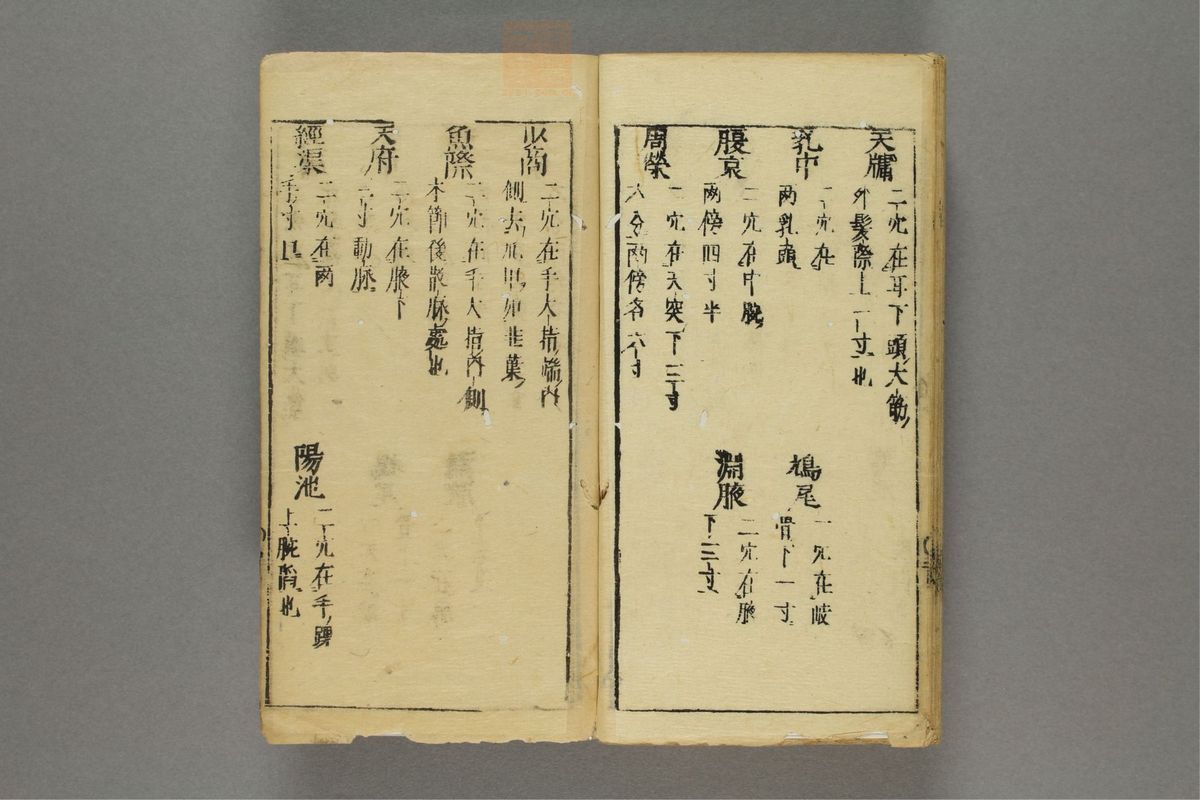 天牖
二穴在耳下頸大筋
外髮際上一寸也
乳中
二穴在
兩乳頭
鳩尾
一穴在歧
骨下一寸
腹哀
二穴在中脘
兩傍四寸半
淵腋
二穴在腋
下三寸
周榮
二穴在天突下三寸
六分兩傍各六寸
少商
二穴在手大指端內
側去爪甲如韭葉
魚際
二穴在手大指內側
本節後散脉處也
天府
二穴在腋下
三寸動脉
經渠
二穴在兩
手寸口
陽池
二穴在手踝
上腕背也